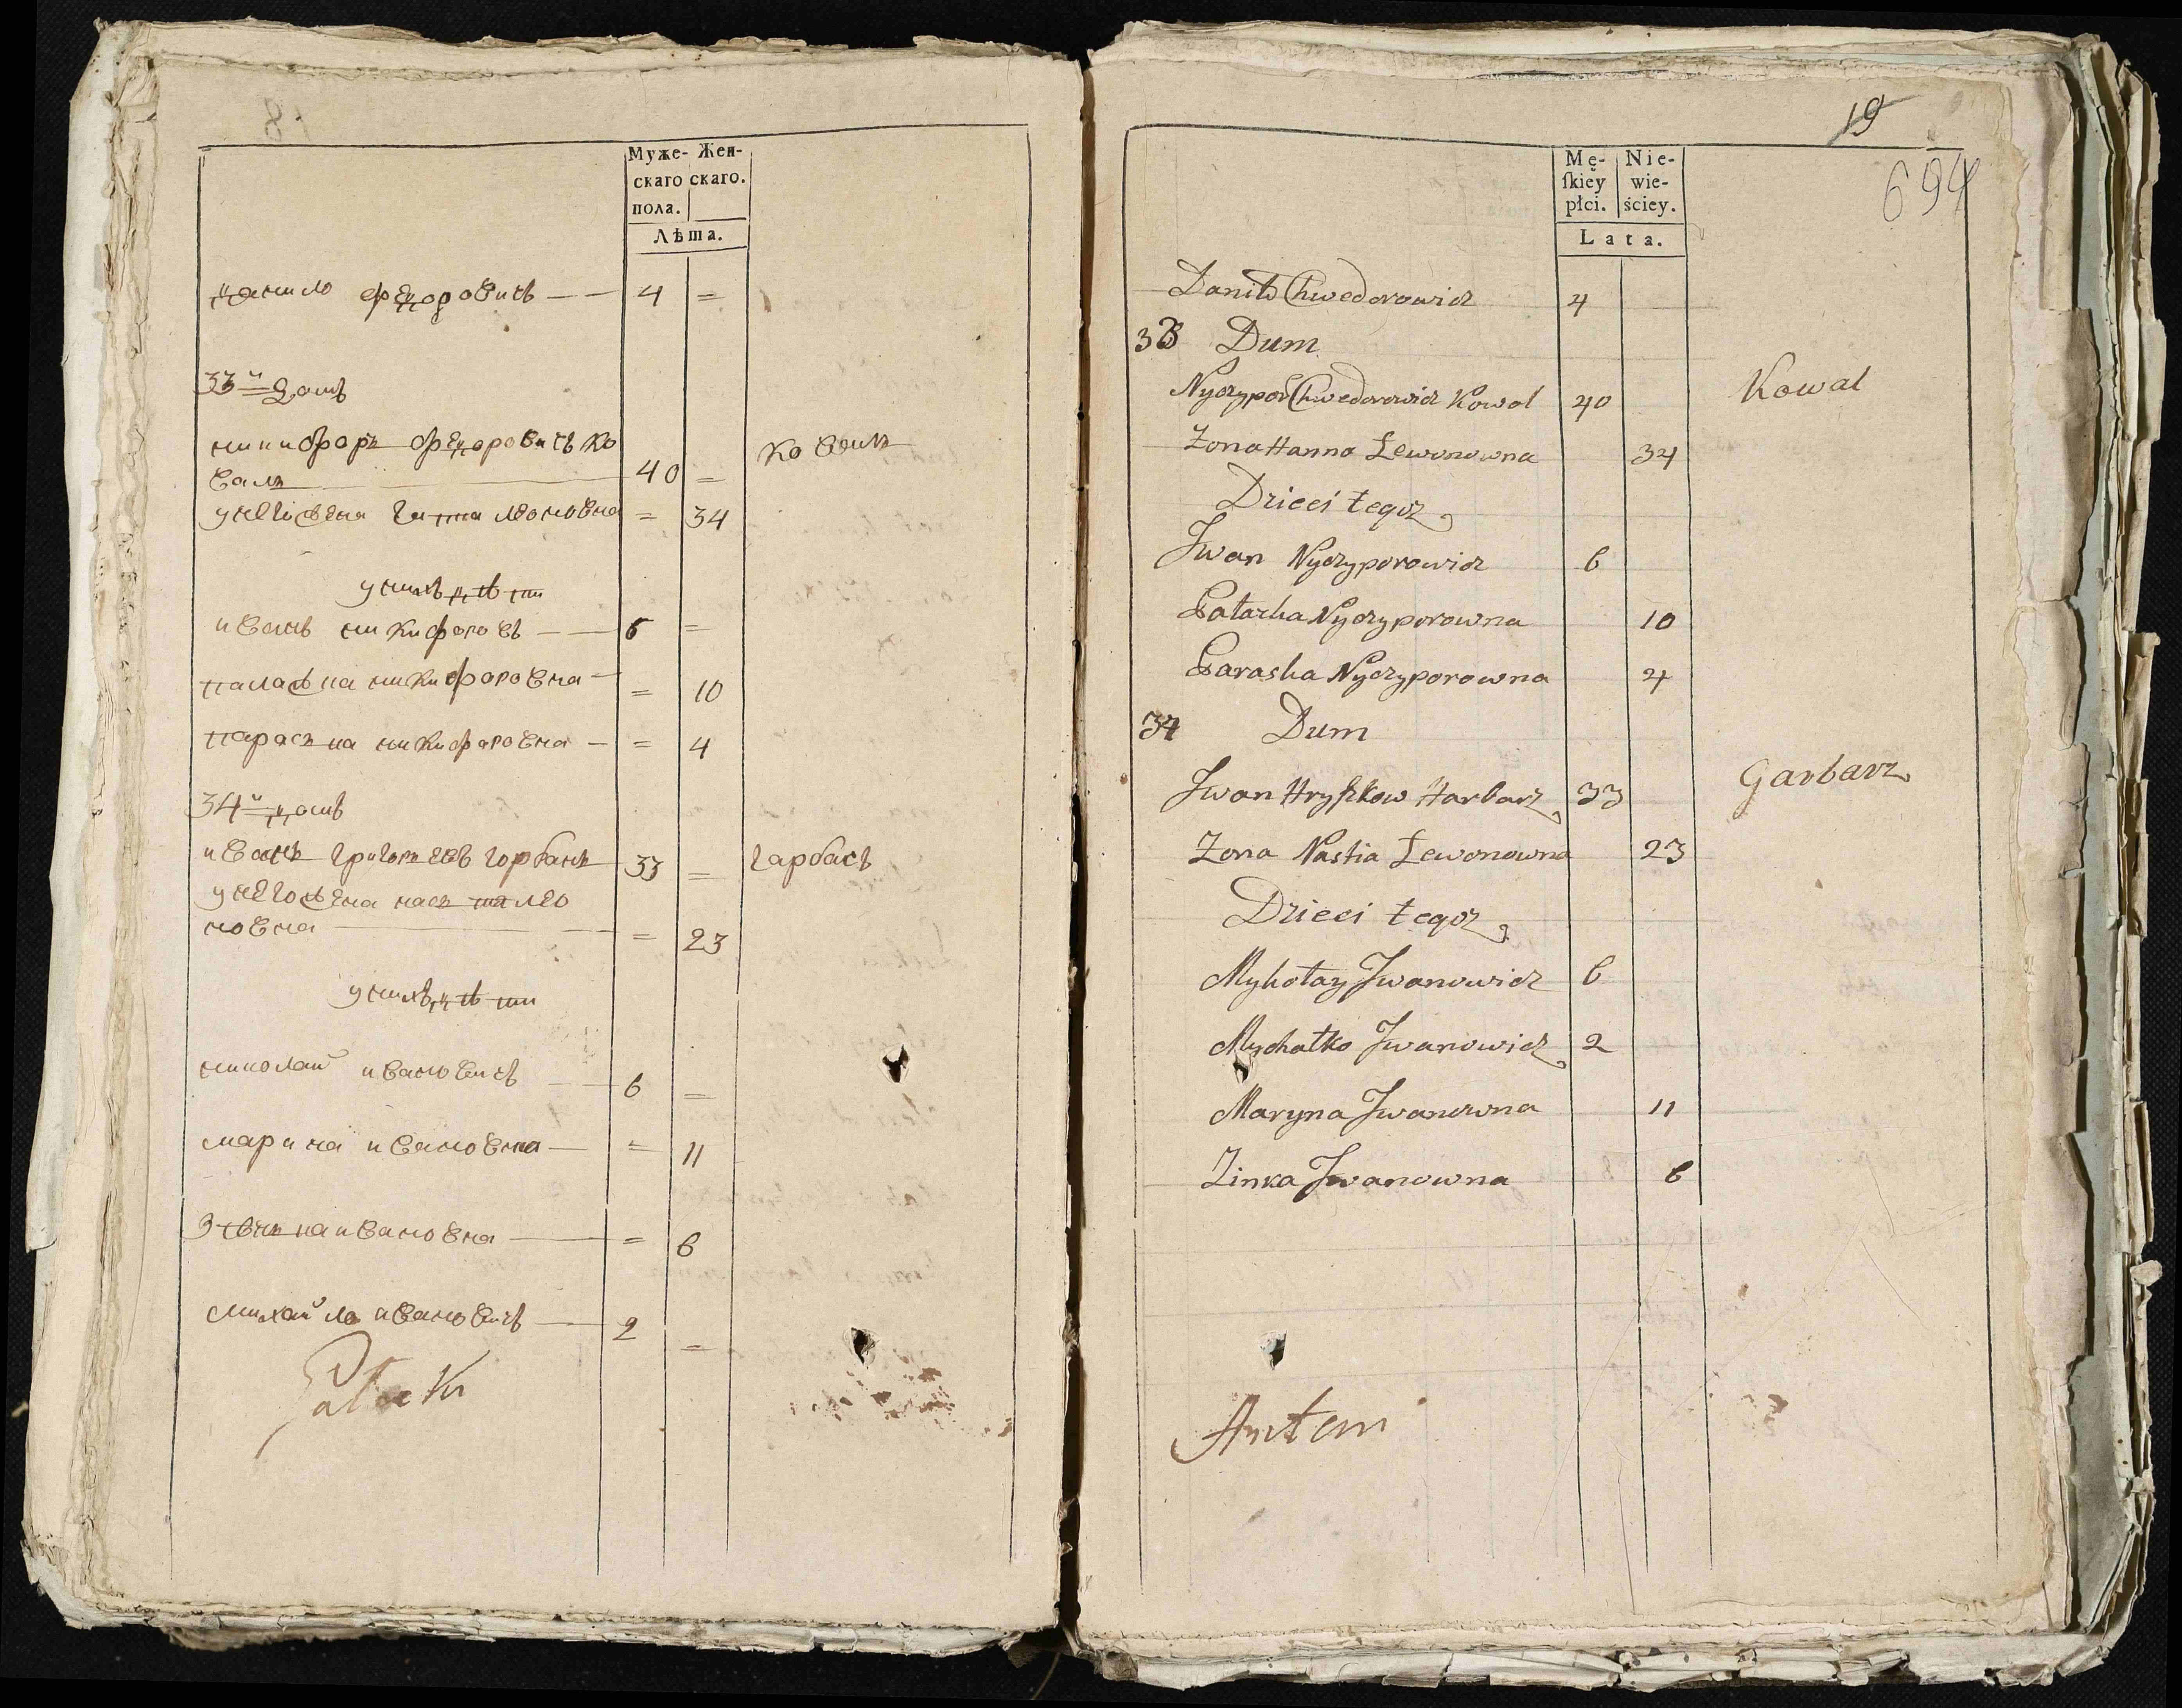 Муже- Жен-
скаго скаго.
пола.
Лѣта.
данило федоровичъ 4 =
33й домъ
никифоръ федоровичъ ко
валъ 40 = ковалъ
у него жена ганна леоновна = 34
у нихъ дѣти
иванъ никифоровъ 6 =
палажка никифоровна = 10
параска никифоровна = 4
34й домъ
иванъ григорьевъ горбачъ 33 = гарбачъ
у него жена настя лео
новна = 23
у нихъ дѣти
николай ивановичъ 6 =
марина ивановна = 11
зѣнька ивановна = 6
михайло ивановичъ 2 =
Potocki
19
694
Mę- Nie-
skiey wie-
płci. ściey.
Lata.
Daniło Chwedorowicz 4
33 Dum
Nyczypor Chwedorowicz Kowal 40 Kowal
Zona Hanna Lewonowna 34
Dzieci tegoz
Jwan Nyczyporowicz 6
Palazka Nyczyporowna 10
Paraska Nyczyporowna 4
34 Dum
Jwan Hryszkow Harbarz 33 Garbarz
Zona Nastia Lewonowna 23
Dzieci tegoz
Mykołay Jwanowicz 6
Mychałko Jwanowicz 2
Maryna Jwanowna 11
Zinka Jwanowna 6
Antoni